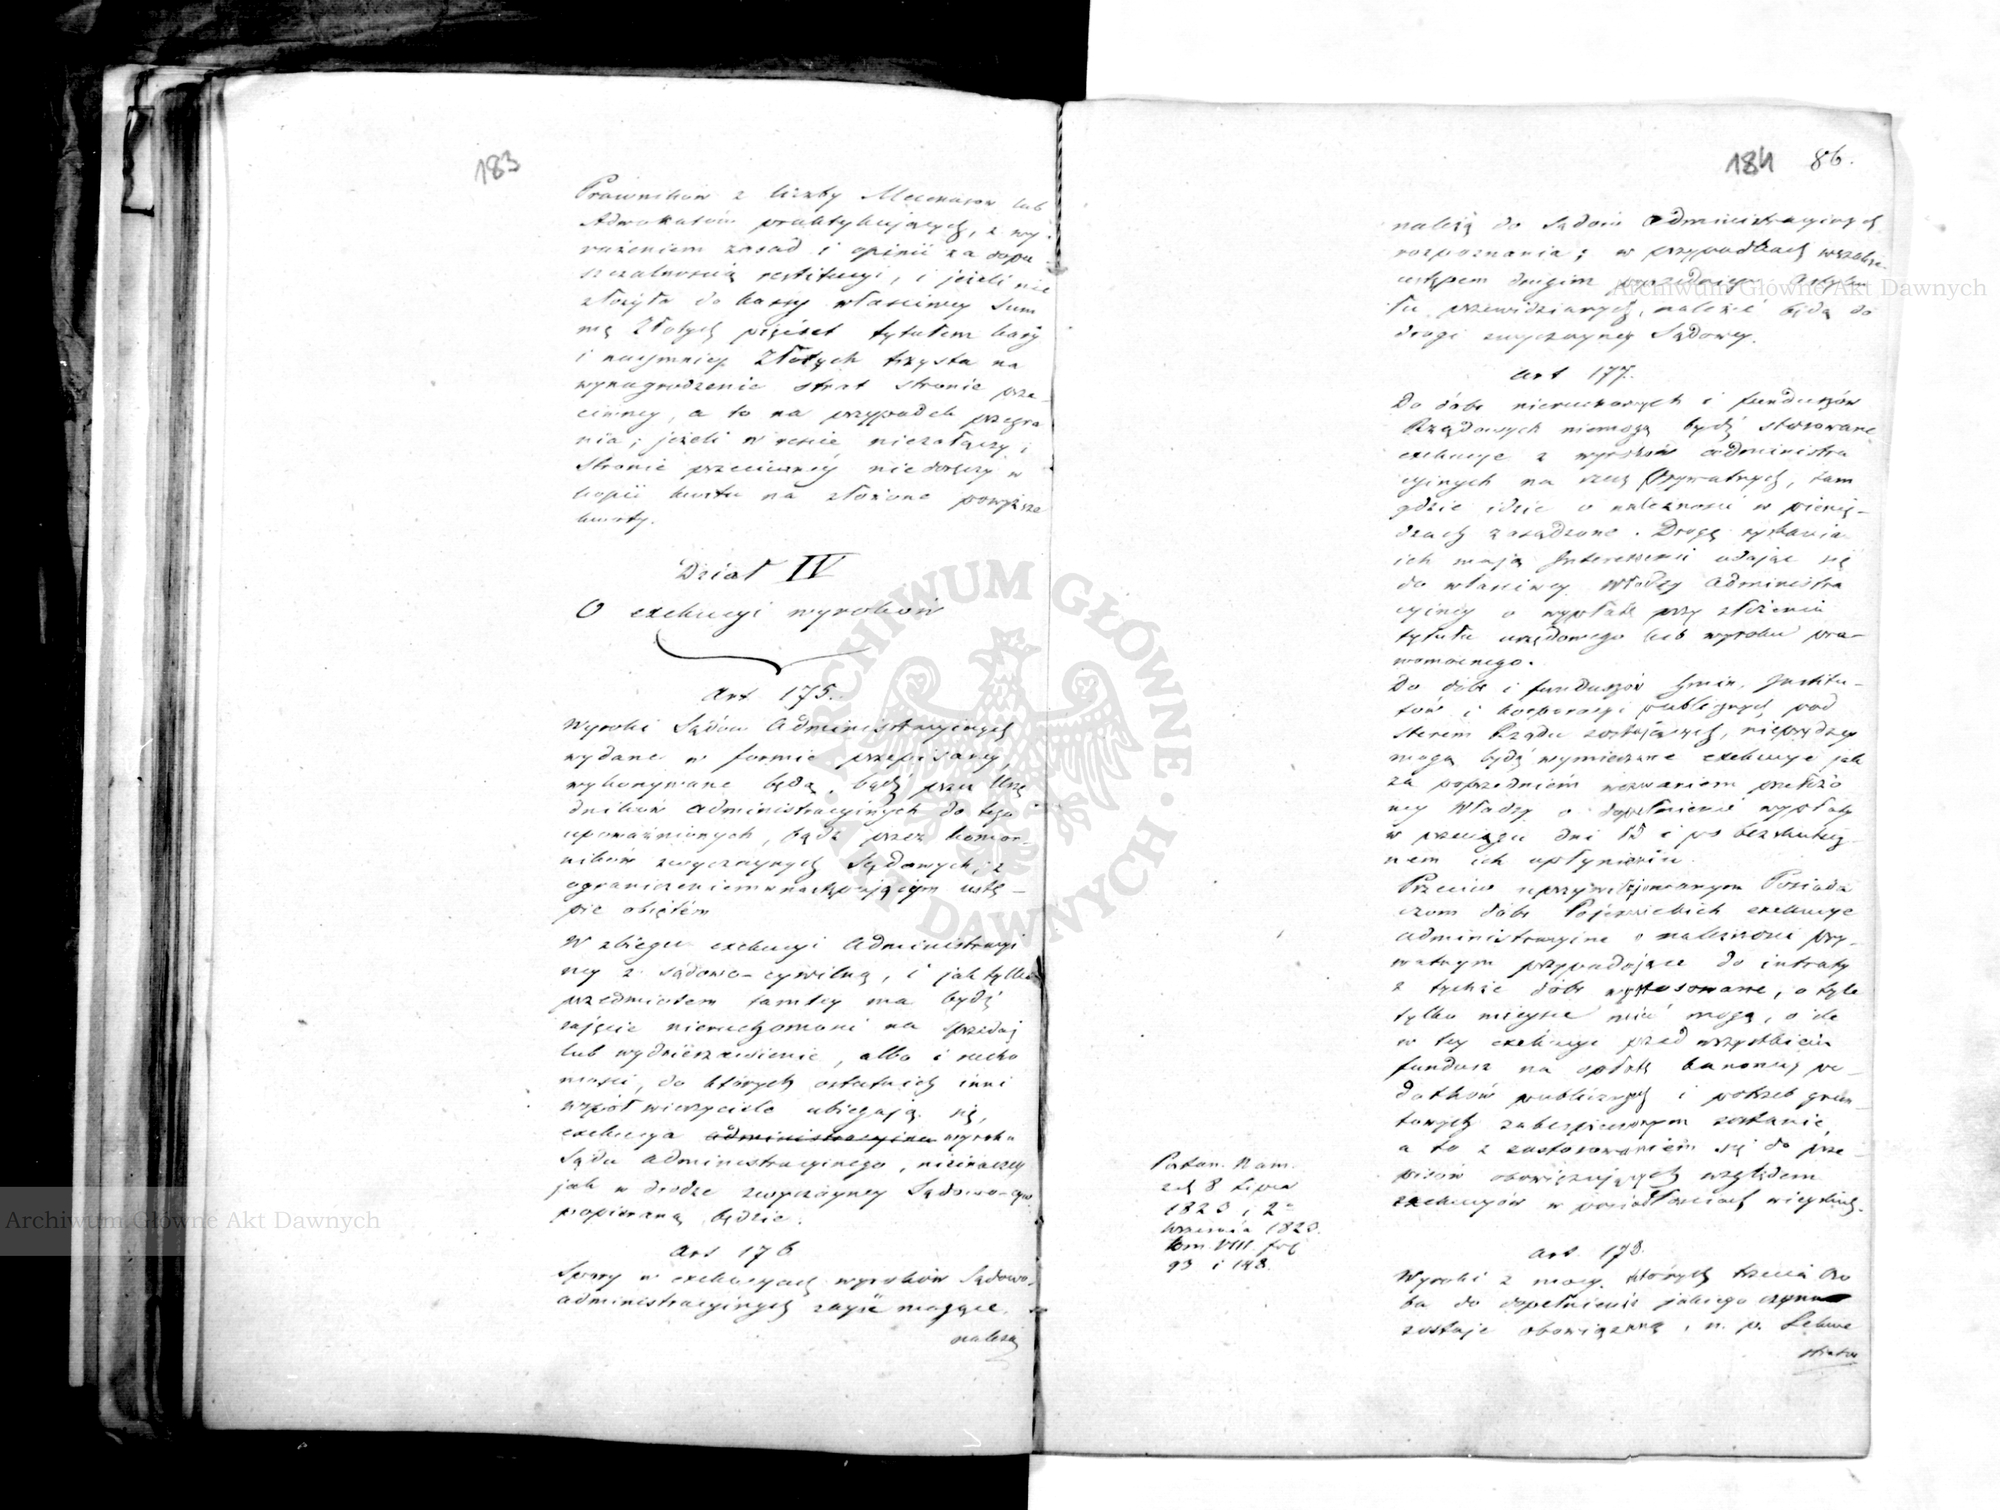 183
Prawników z liczby Mecenasów lub
Adwokatów praktykujących, z wy-
rażeniem zasad i opinii za dopu-
szczalnością restitucyi, i jeżeli nie
złożyła do kassy właściwey Sum
mę Złotych pięćset tytułem kary
i naymniey Złotych trzysta na
wynagrodzenie strat stronie prze-
ciwney, a to na przypadek przegra
nia; jeżeli w resie niezałączy i
stronie przeciwney niedoręczy w
kopii kwitu na złożone powyższe
kwoty.
Dział IV
O exekucyi wyroków
Art 175.
Wyroki Sądów Administracyinych
wydane w formie przepisaney,
wykonywane będą, bądź przez Urzę
dników administracyinych do tego
upoważnionych, bądź przez komor-
ników zwyczaynych Sądowych; z
ograniczeniem w następującym ustę-
pie obiętém
W zbiegu exekucyi Administracyi
ney z sądowo-cywilną, i jak tylko
przedmiotem tamtey ma bydź
zajęcie nieruchomości na sprzedaj
lub wydzierżawienie, albo i rucho
mości, do których ostatnich inni
współwierzyciele ubiegają się,
exekucya administracyina wyroku
Sądu administracyinego, nieinaczey
jak w drodze zwyczayney Sądowo-cyw.
popieraną będzie.
Art 176
Spory w exekucyach wyroków Sądowo-
administracyinych zayść mogące,
należą
184 86.
należą do Sądów administracyinych
rozpoznania; w przypadkach wszakże
ustępem drugim poprzedniego Artyku
łu przewidzianych, należeć będą do
drogi zwyczayney Sądowey.
Art 177.
Do dóbr nieruchomych i funduszów
Rządowych niemogą bydź stosowane
exekucye z wyroków administra
cyinych na rzecz Prywatnych, tam
gdzie idzie o należności w pienię-
dzach zasądzone. Drogę zyskania
ich mają Interessenci udając się
do właściwey Władzy administra
cyiney o wypłatę przy złożeniu
tytułu urzędowego lub wyroku pra-
womocnego.
Do dóbr i funduszów Gmin, Institu-
tów i korporacyi publicznych pod
sterem Rządu zostających, nieprędzey
mogą bydź wymierzane exekucye jak
za poprzedniém wezwaniem przełożo
ney Władzy o dopełnienie wypłaty
w przeciągu dni 14 i po bezskutecz-
nem ich upłynieniu.
Przeciw uprzywilejowanym Posiada
czom dóbr Pojezuickich exekucye
administracyine o należności pry-
watnym przypadające do intraty
z tychże dóbr wystosowane, o tyle
tylko mieysce mieć mogą, o ile
w tey exekucyi przed wszystkiém
fundusz na opłatę kanonu, po-
datków publicznych i potrzeb grun-
towych zabezpieczonym zostanie,
a to z zastosowaniem się do prze-
pisów obowiązujących względem
exekucyów w posiadłościach wieyskich.
Postan. Nam.
z d. 8 Lipca
1823 i 2
Września 1823.
tom VIII. fol
93 i 143.
Art 178.
Wyroki z mocy których trzecia Oso
ba do dopełnienia jakiego czynu
zostaje obowiązaną, n. p. Sekwe
stator
Archiwum Główne Akt Dawnych
Archiwum Główne Akt Dawnych
ARCHIWUM GŁÓWNE AKT DAWNYCH